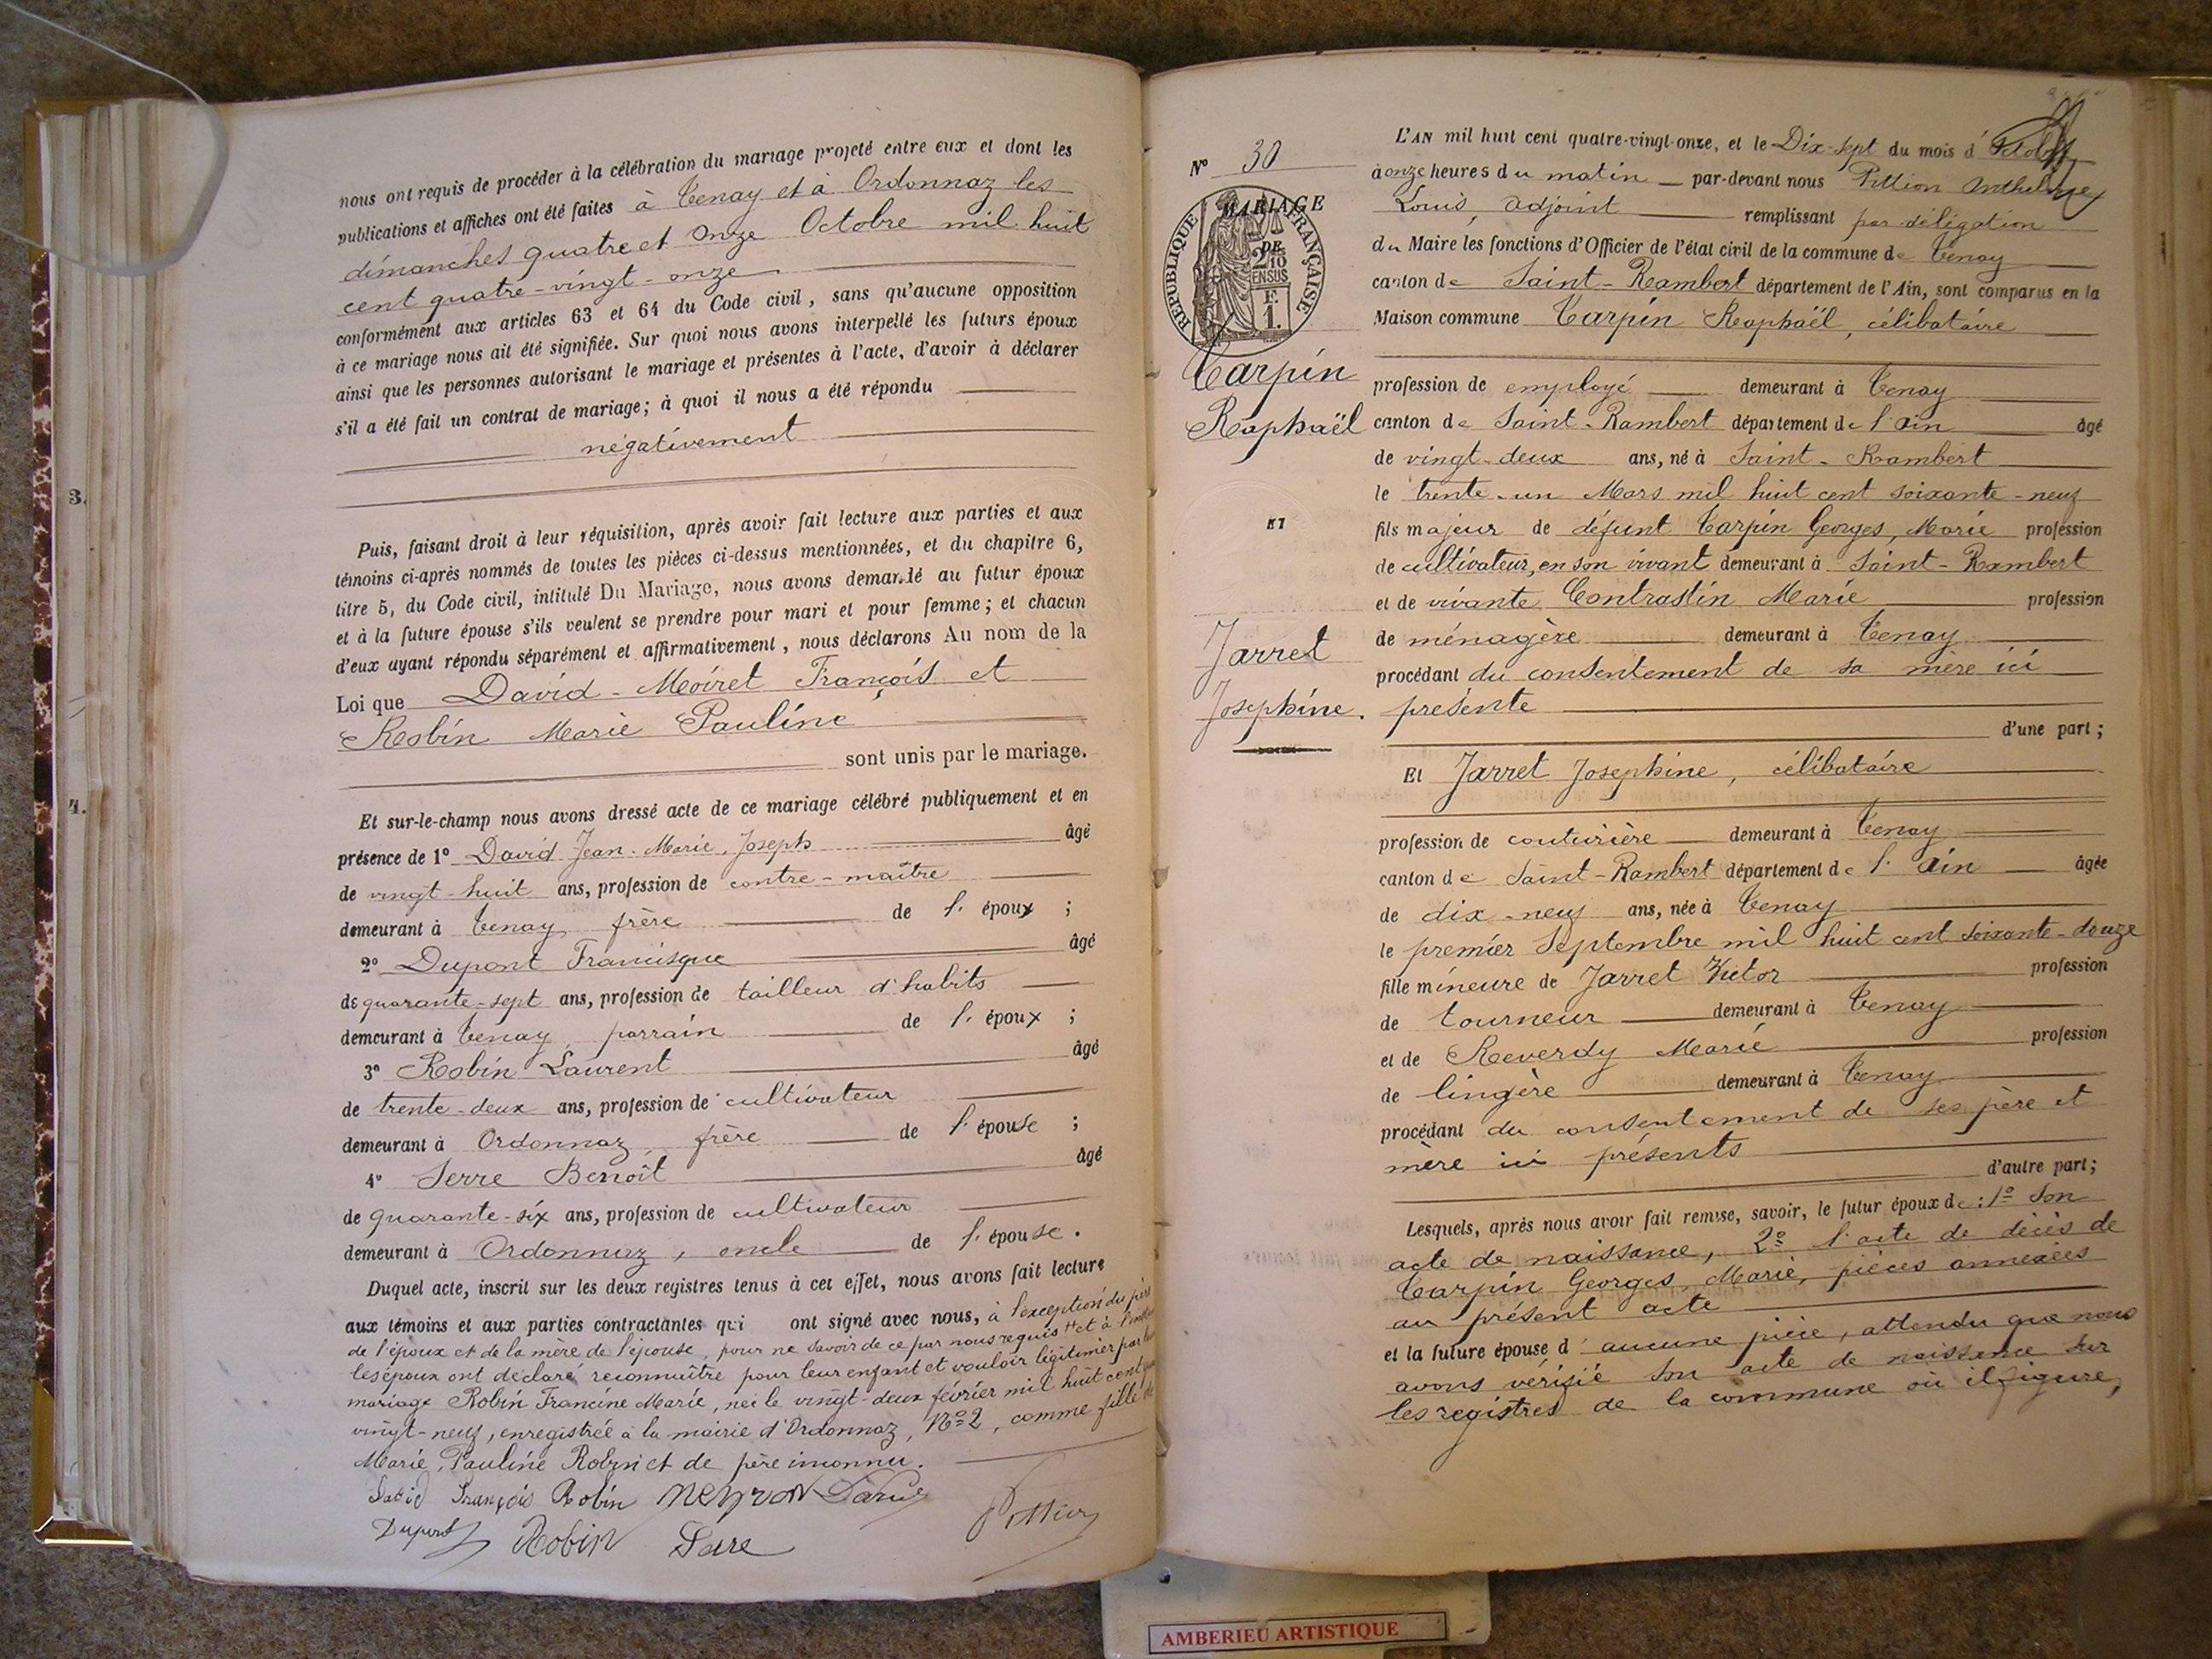 nous ont requis de procéder à la célébration du mariage projeté entre eux et dont les
publications et affiches ont été faites à Tenay et à Ordonnaz les
dimanches quatre et onze Octobre mil huit
cent quatre-vingt-onze
conformément aux articles 63 et 64 du Code civil, sans qu'aucune opposition
à ce mariage nous ait été signifiée. Sur quoi nous avons interpellé les futurs époux
ainsi que les personnes autorisant le mariage et présentes à l'acte, d'avoir à déclarer
s'il a été fait un contrat de mariage; à quoi il nous a été répondu
négativement
3.
Puis, faisant droit à leur réquisition, après avoir fait lecture aux parties et aux
témoins ci-après nommés de toutes les pièces ci-dessus mentionnées, et du chapitre 6,
titre 5, du Code civil, intitulé Du Mariage, nous avons demandé au futur époux
et à la future épouse s'ils veulent se prendre pour mari et pour femme; et chacun
d'eux ayant répondu séparément et affirmativement, nous déclarons Au nom de la
Loi que David-Moiret François et
Robin Marie Pauline
sont unis par le mariage.
4.
Et sur-le-champ nous avons dressé acte de ce mariage célébré publiquement et en
présence de 1° David Jean-Marie, Joseph âgé
de vingt-huit ans, profession de contre-maître
demeurant à Tenay, frère de l'époux ;
2° Dupont Francisque âgé
de quarante-sept ans, profession de tailleur d'habits
demeurant à Tenay, parrain de l'époux ;
3° Robin Laurent âgé
de trente-deux ans, profession de cultivateur
demeurant à Ordonnaz, frère de l'épouse ;
4° Serre Benoît âgé
de quarante-six ans, profession de cultivateur
demeurant à Ordonnaz, oncle de l'épouse.
Duquel acte, inscrit sur les deux registres tenus à cet effet, nous avons fait lecture
aux témoins et aux parties contractantes qui ont signé avec nous, à l'exception du père
de l'époux et de la mère de l'épouse, pour ne savoir de ce par nous requis et à
les époux ont déclaré reconnaître pour leur enfant et vouloir légitimer par
mariage Robin Francine Marie, née le vingt-deux février mil huit cent
vingt-neuf, enregistrée à la mairie d'Ordonnaz, N° 2, comme fille de
Marie, Pauline Robin et de père inconnu.
David François Robin Neyron David
Dupont Robin Serre Pittion
N° 30
MARIAGE
RÉPUBLIQUE FRANÇAISE
2/10 DE
EN SUS
F.
1.
Tarpin
Raphaël
ET
Jarret
Josephine.
L'AN mil huit cent quatre-vingt-onze, et le Dix-sept du mois d'Octobre
à onze heures du matin par-devant nous Pittion Anthelme
Louis, adjoint remplissant par délégation
du Maire les fonctions d'Officier de l'état civil de la commune de Tenay
canton de Saint-Rambert département de l'Ain, sont comparus en la
Maison commune Tarpin Raphaël, célibataire
profession de employé demeurant à Tenay
canton de Saint-Rambert département de l'Ain âgé
de vingt-deux ans, né à Saint-Rambert
le trente-un Mars mil huit cent soixante-neuf
fils majeur de défunt Tarpin Georges, Marie profession
de cultivateur, en son vivant demeurant à Saint-Rambert
et de vivante Contrastin Marie profession
de ménagère demeurant à Tenay
procédant du consentement de sa mère ici
présente
d'une part;
Et Jarret Josephine, célibataire
profession de couturière demeurant à Tenay
canton de Saint-Rambert département de l'Ain âgée
de dix-neuf ans, née à Tenay
le premier Septembre mil huit cent soixante-douze
fille mineure de Jarret Victor profession
de tourneur demeurant à Tenay
et de Reverdy Marie profession
de lingère demeurant à Tenay
procédant du consentement de ses père et
mère ici présents
d'autre part;
Lesquels, après nous avoir fait remise, savoir, le futur époux de: 1° Son
acte de naissance, 2° l'acte de décès de
Tarpin Georges, Marie, pièces annexées
au présent acte
et la future épouse d'aucune pièce, attendu que nous
avons vérifié son acte de naissance sur
les registres de la commune où il figure,
AMBERIEU ARTISTIQUE